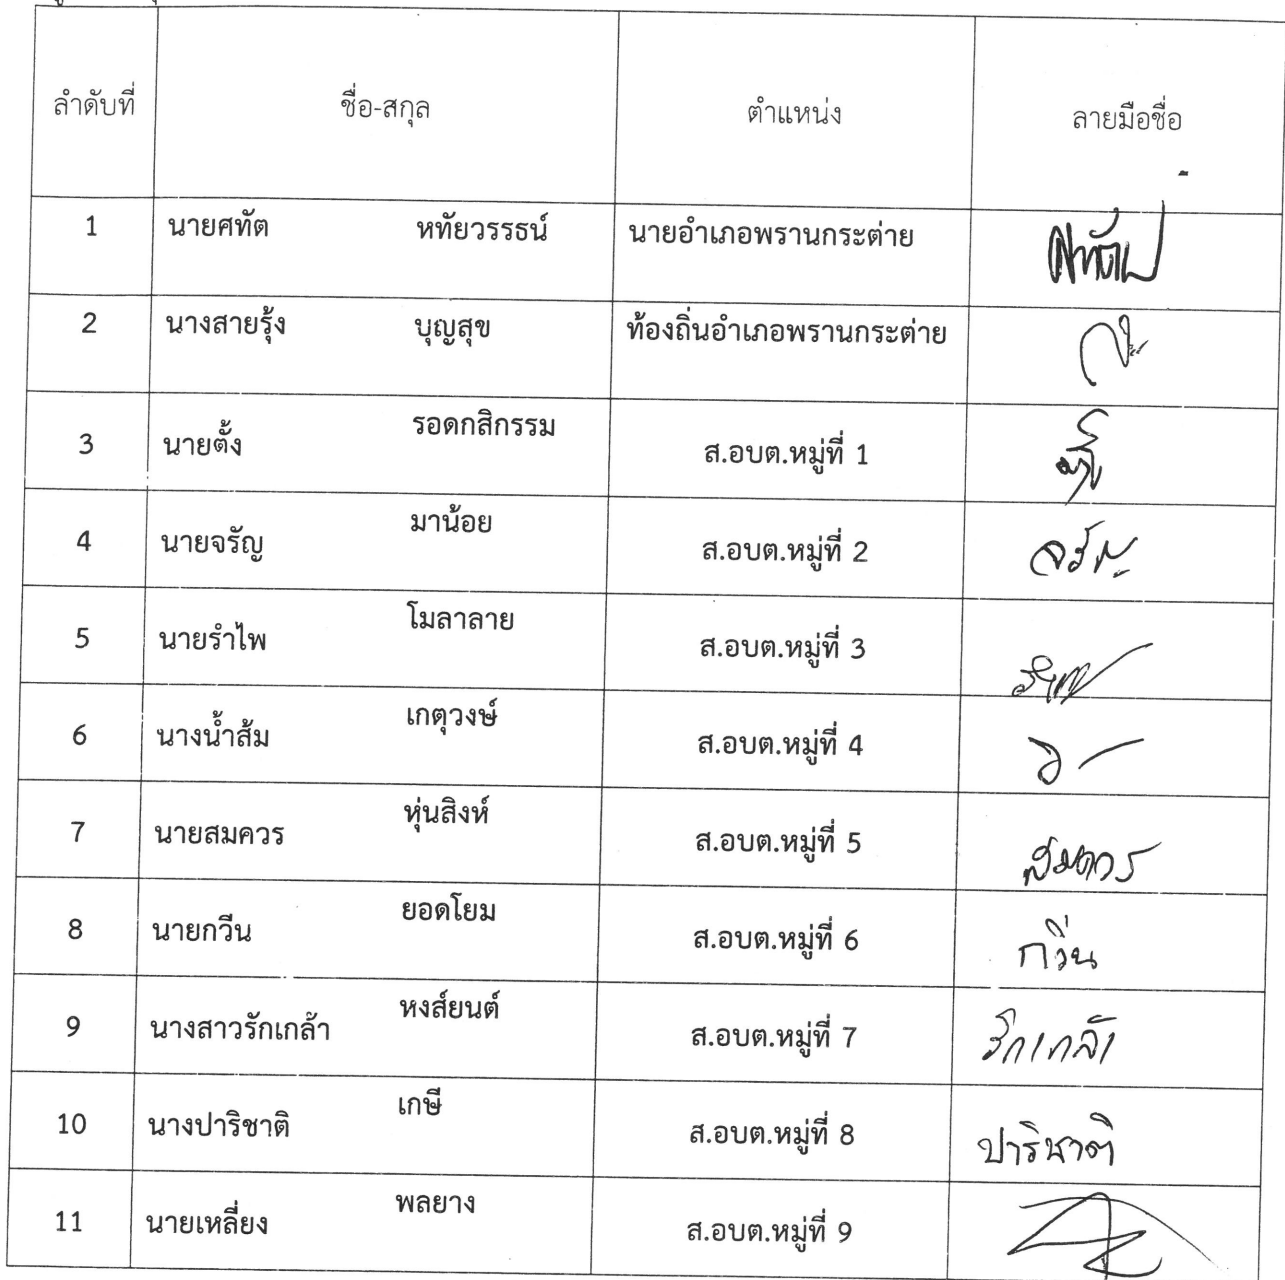 ลำดับที่ ชื่อ-สกุล ตำแหน่ง ลายมือชื่อ
1 นายศทัต หทัยวรรธน์ นายอำเภอพรานกระต่าย
2 นางสายรุ้ง บุญสุข ท้องถิ่นอำเภอพรานกระต่าย
3 นายตั้ง รอดกสิกรรม ส.อบต.หมู่ที่ 1
4 นายจรัญ มาน้อย ส.อบต.หมู่ที่ 2 จรัญ
5 นายรำไพ โมลาลาย ส.อบต.หมู่ที่ 3
6 นางน้ำส้ม เกตุวงษ์ ส.อบต.หมู่ที่ 4
7 นายสมควร หุ่นสิงห์ ส.อบต.หมู่ที่ 5 สมควร
8 นายกวีน ยอดโยม ส.อบต.หมู่ที่ 6 กวีน
9 นางสาวรักเกล้า หงส์ยนต์ ส.อบต.หมู่ที่ 7 รักเกล้า
10 นางปาริชาติ เกษี ส.อบต.หมู่ที่ 8 ปาริชาติ
11 นายเหลี่ยง พลยาง ส.อบต.หมู่ที่ 9